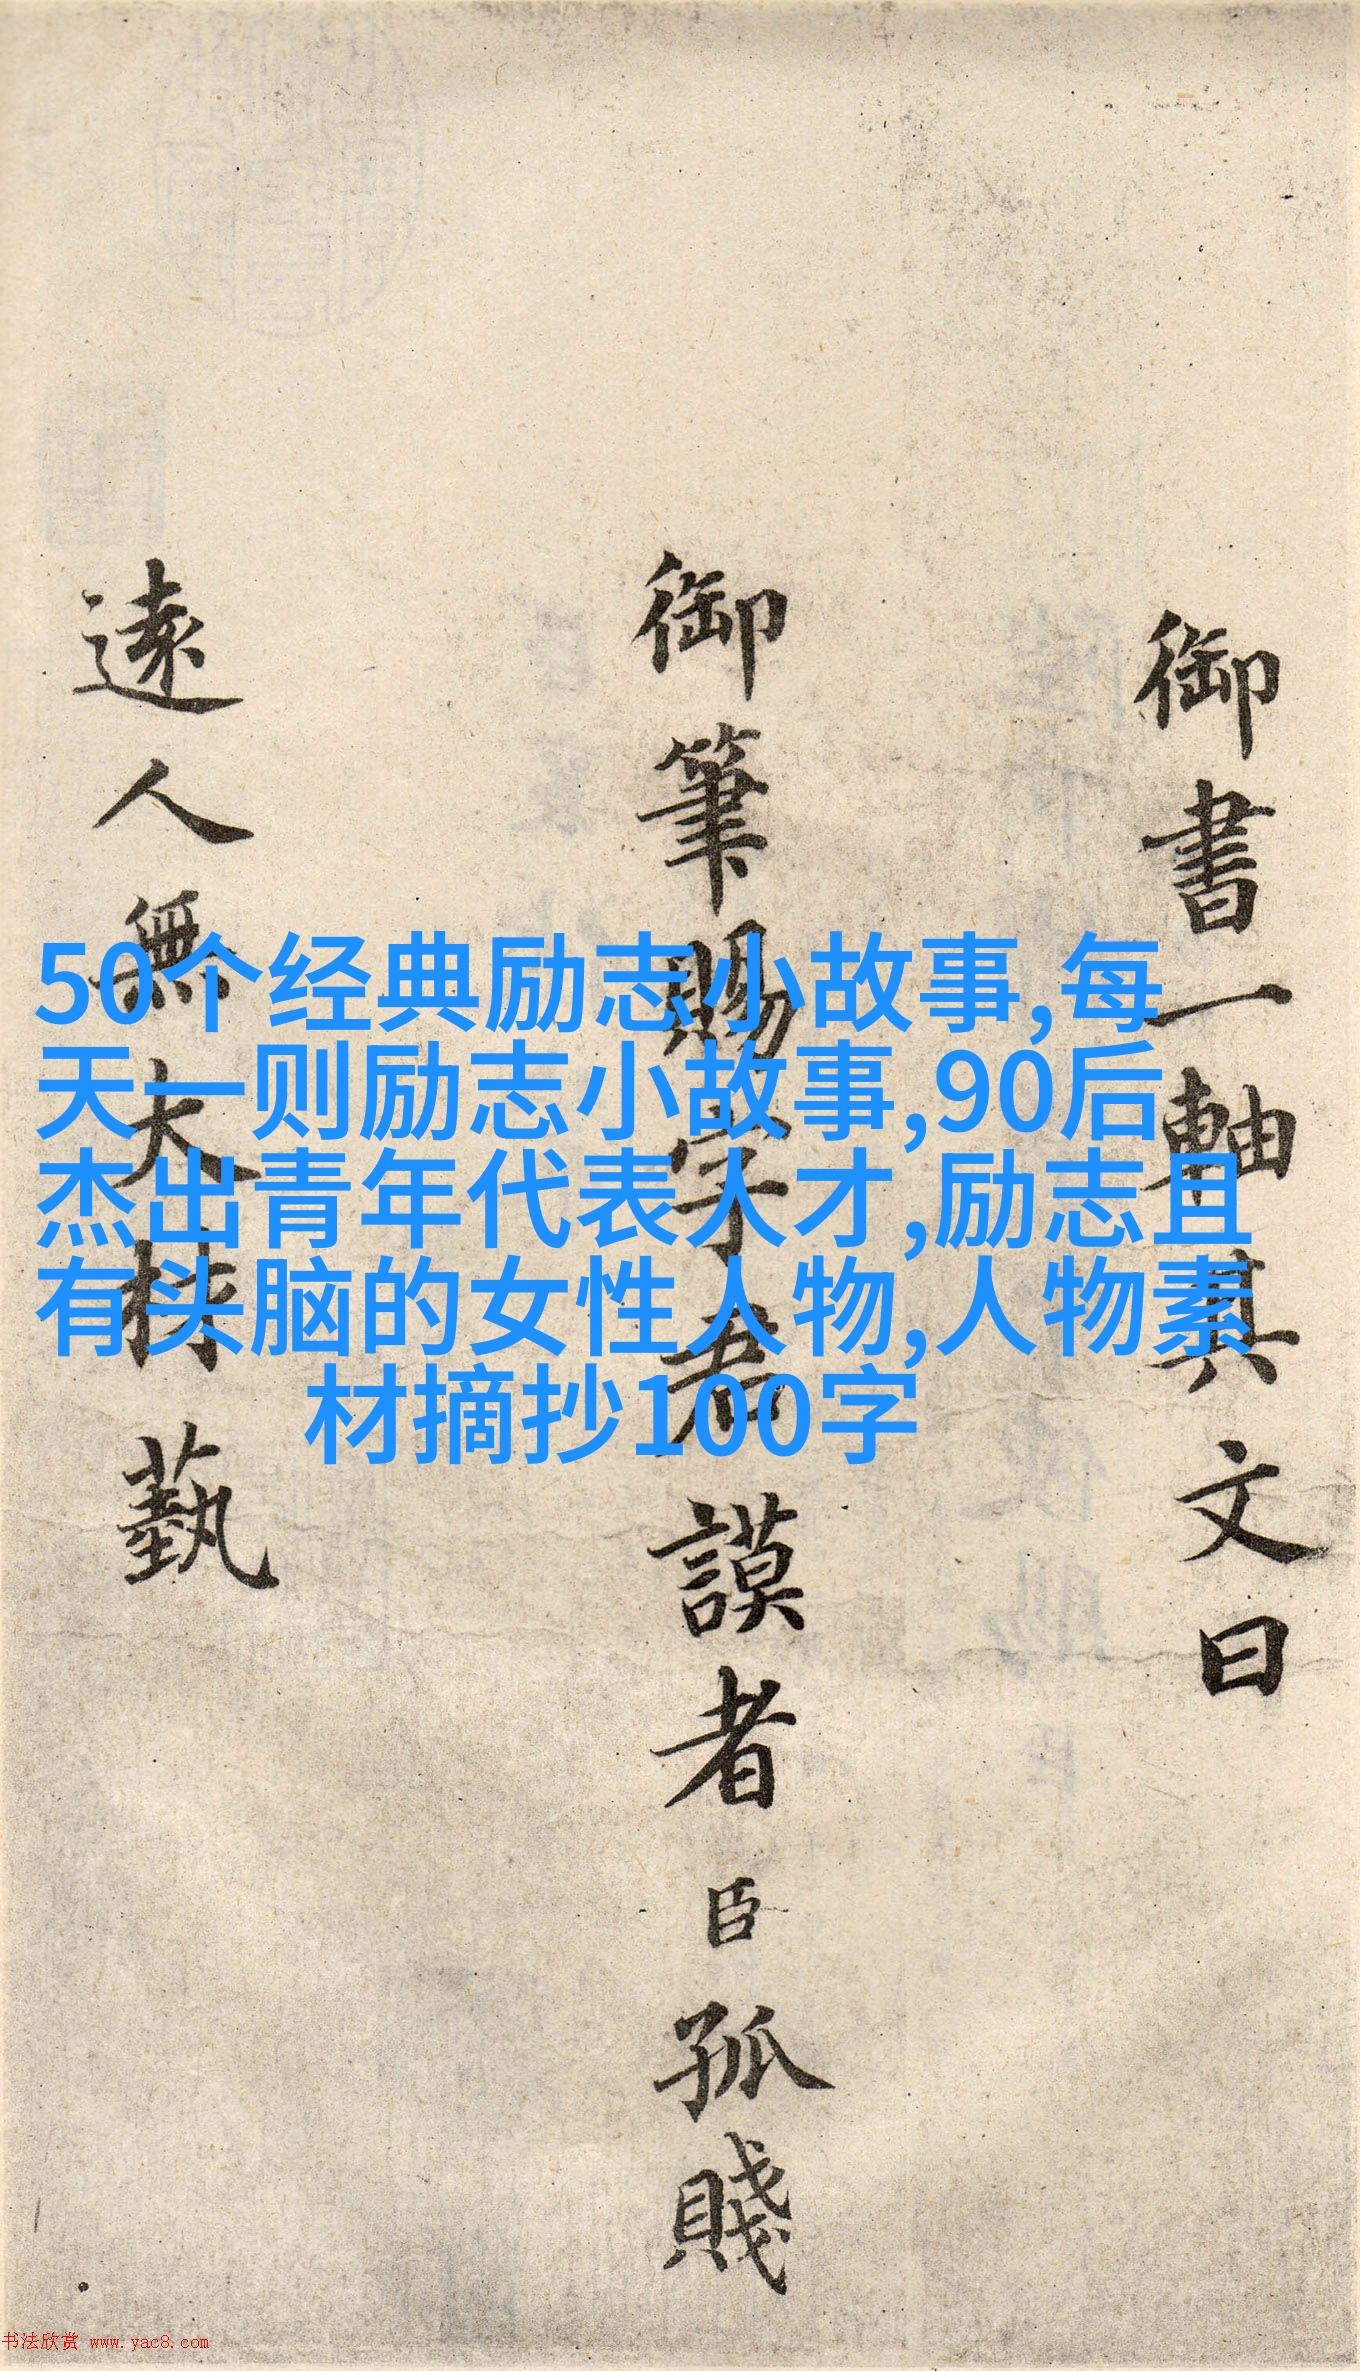 御書一軸其文曰
御筆賜字者謨者臣孤賤
遠人無大材藝
50个经典励志小故事,每
天一则励志小故事,90后
杰出青年代表人才,励志且
有头脑的女性人物,人物素
材摘抄100字
书法欣赏 www.yac8.com